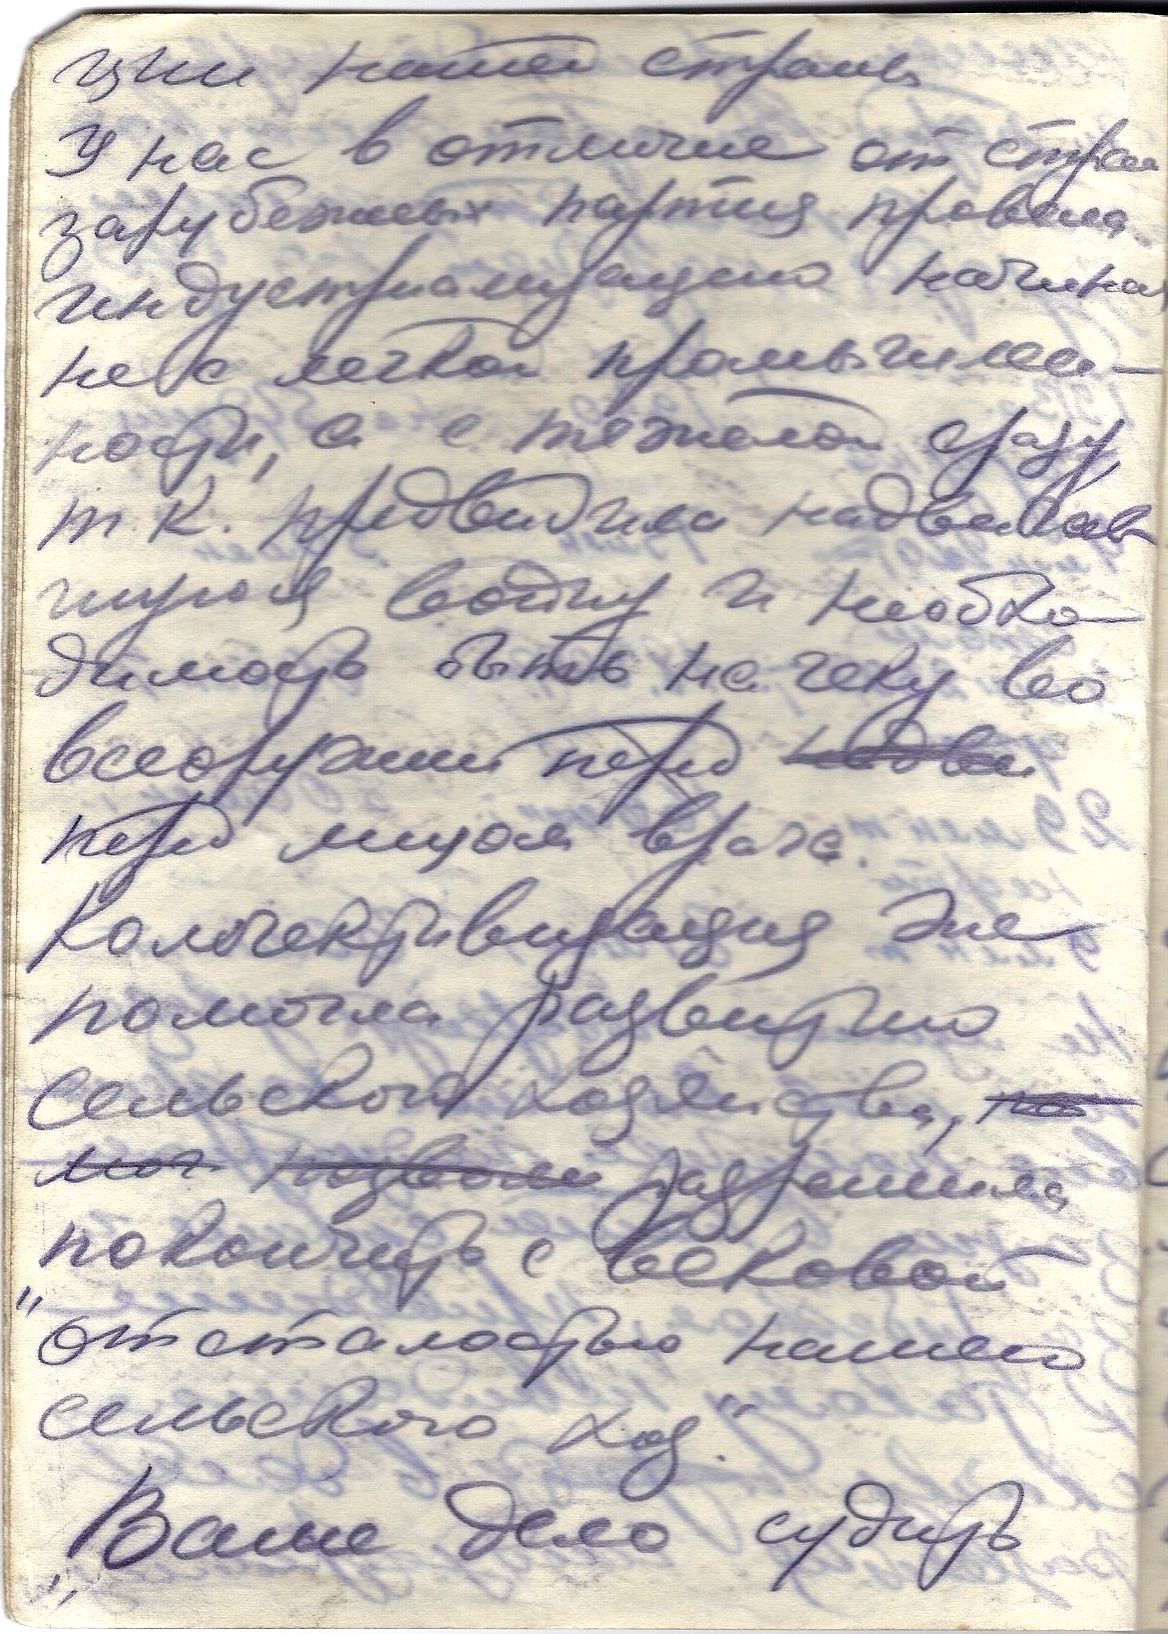 ции нашей страны
У нас в отличие от стран
зарубежных партия провела
индустриализацию начиная
не с легкой промышлен-
ности, а с тяжелой сразу,
т.к. предвидила надвигав
шуюся войну и необхо-
димость быть на чеку во
всеоружии перед
перед лицом врага.
Коллективизация же
помогла развитию
сельского хозяйства, по
мог позволи разрешила
покончить с вековой
"отсталостью нашего
сельского хоз."
"Ваше дело судить